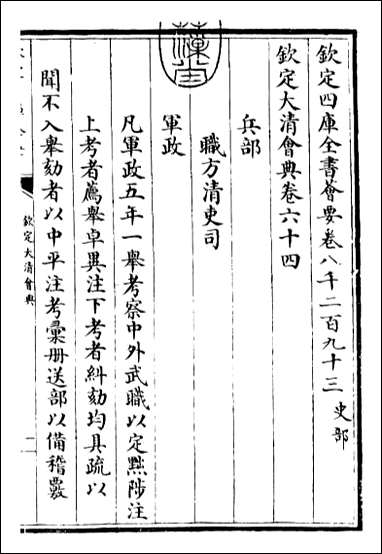 欽定四庫全書薈要卷八千二百九十三 史部
欽定大清會典卷六十四
兵部
職方清吏司
軍政
凡軍政五年一舉考察中外武職以定黜陟注
上考者薦舉卓異注下考者糾劾均具疏以
聞不入舉劾者以中平注考彙册送部以備稽覈
欽定大清會典